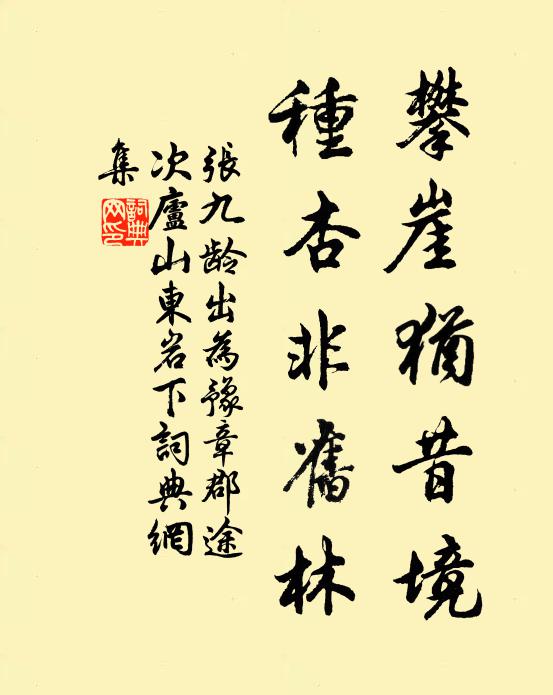 攀崖猶昔境
種杏非舊林
張九龄出為豫章郡途
次廬山東岩下詞典網
集
詞典
网印